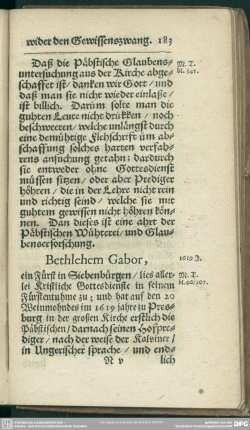 wider den Gewissenszwang. 183
Daß die Päbstische Glaubens-
untersuchung aus der Kirche abge-
schaffet ist/ danken wir Gott/ und
daß man sie nicht wieder einlaße/
ist billich. Darüm solte man die
guhten Leute nicht drükken/ noch
beschweeren/ welche unlängst durch
eine demühtige Flehschrift üm ab-
schaffung solches harten verfah-
rens ansuchung getahn: dardurch
sie entweder ohne Gottesdienst
müssen sitzen/ oder aber Prediger
höhren/ die in der Lehre nicht rein
und richtig seind/ welche sie mit
guhtem gewissen nicht höhren kön-
nen. Dan dieses ist eine ahrt der
Päbstischen Wühterei/ und Glau-
benserforschung.
M. T.
bl. 141.
Bethlehem Gabor,
ein Fürst in Siebenbürgen/ lies aller-
lei Kristliche Gottesdienste in seinem
Fürstentuhme zu; und hat auf den 20
Weinmohndes im 1619 jahre zu Pres-
burg in der großen Kirche erstlich die
Päbstischen/ darnach seinen Hofpre-
diger/ nach der weise der Kalviner/
in Ungerischer sprache/ und end-
1619 J.
M. T.
N v
lich